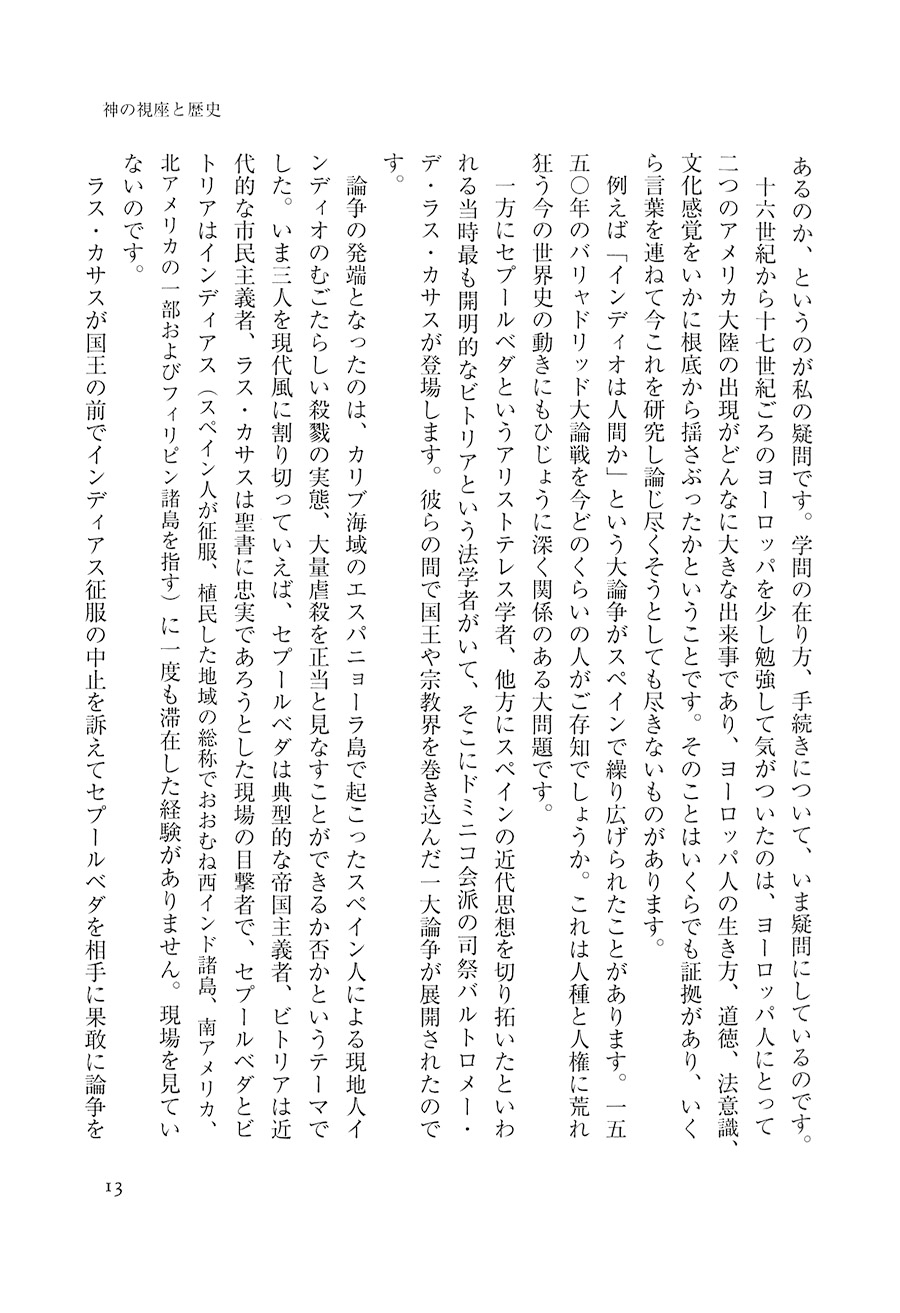 神の視座と歴史
あるのか、というのが私の疑問です。学問の在り方、手続きについて、いま疑問にしているのです。
十六世紀から十七世紀ごろのヨーロッパを少し勉強して気がついたのは、ヨーロッパ人にとって
二つのアメリカ大陸の出現がどんなに大きな出来事であり、ヨーロッパ人の生き方、道徳、法意識、
文化感覚をいかに根底から揺さぶったかということです。そのことはいくらでも証拠があり、いく
ら言葉を連ねて今これを研究し論じ尽くそうとしても尽きないものがあります。
例えば「インディオは人間か」という大論争がスペインで繰り広げられたことがあります。一五
五〇年のバリャドリッド大論戦を今どのくらいの人がご存知でしょうか。これは人種と人権に荒れ
狂う今の世界史の動きにもひじょうに深く関係のある大問題です。
一方にセプールベダというアリストテレス学者、他方にスペインの近代思想を切り拓いたといわ
れる当時最も開明的なビトリアという法学者がいて、そこにドミニコ会派の司祭バルトロメー・
デ・ラス・カサスが登場します。彼らの間で国王や宗教界を巻き込んだ一大論争が展開されたので
す。
論争の発端となったのは、カリブ海域のエスパニョーラ島で起こったスペイン人による現地人イ
ンディオのむごたらしい殺戮の実態、大量虐殺を正当と見なすことができるか否かというテーマで
した。いま三人を現代風に割り切っていえば、セプールベダは典型的な帝国主義者、ビトリアは近
代的な市民主義者、ラス・カサスは聖書に忠実であろうとした現場の目撃者で、セプールベダとビ
トリアはインディアス（スペイン人が征服、植民した地域の総称でおおむね西インド諸島、南アメリカ、
北アメリカの一部およびフィリピン諸島を指す）に一度も滞在した経験がありません。現場を見てい
ないのです。
ラス・カサスが国王の前でインディアス征服の中止を訴えてセプールベダを相手に果敢に論争を
13